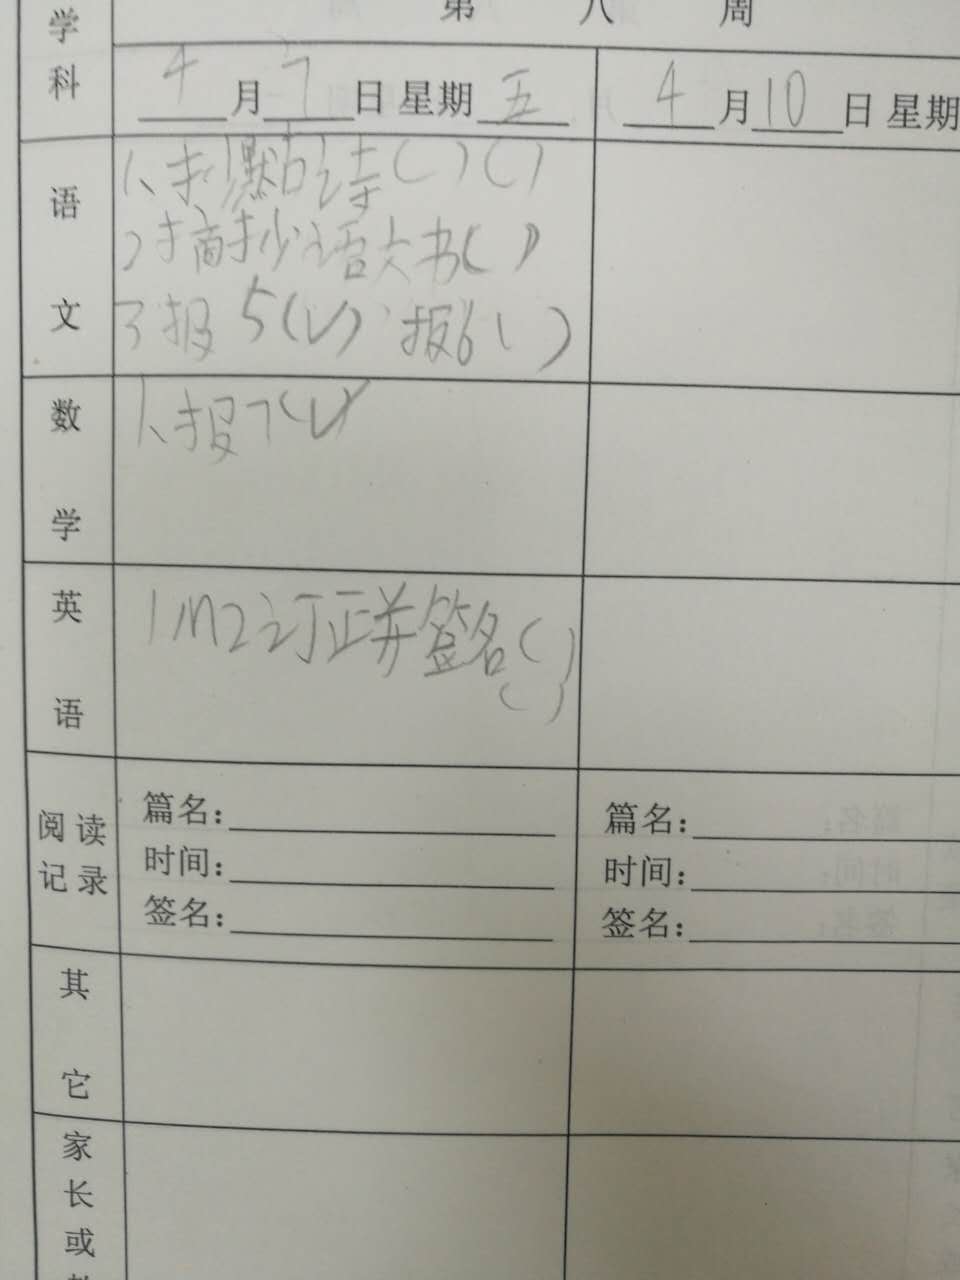 第 八 周
学科
4月7日 星期五
4月10日 星期
语文
1、抄默诗( )( )
2摘抄语文书( )
3报5(√) 报6( )
数学
1、报7(√)
英语
1 M2订正并签名( )
( )
阅读记录
篇名:
时间:
签名:
篇名:
时间:
签名:
其它
家长或